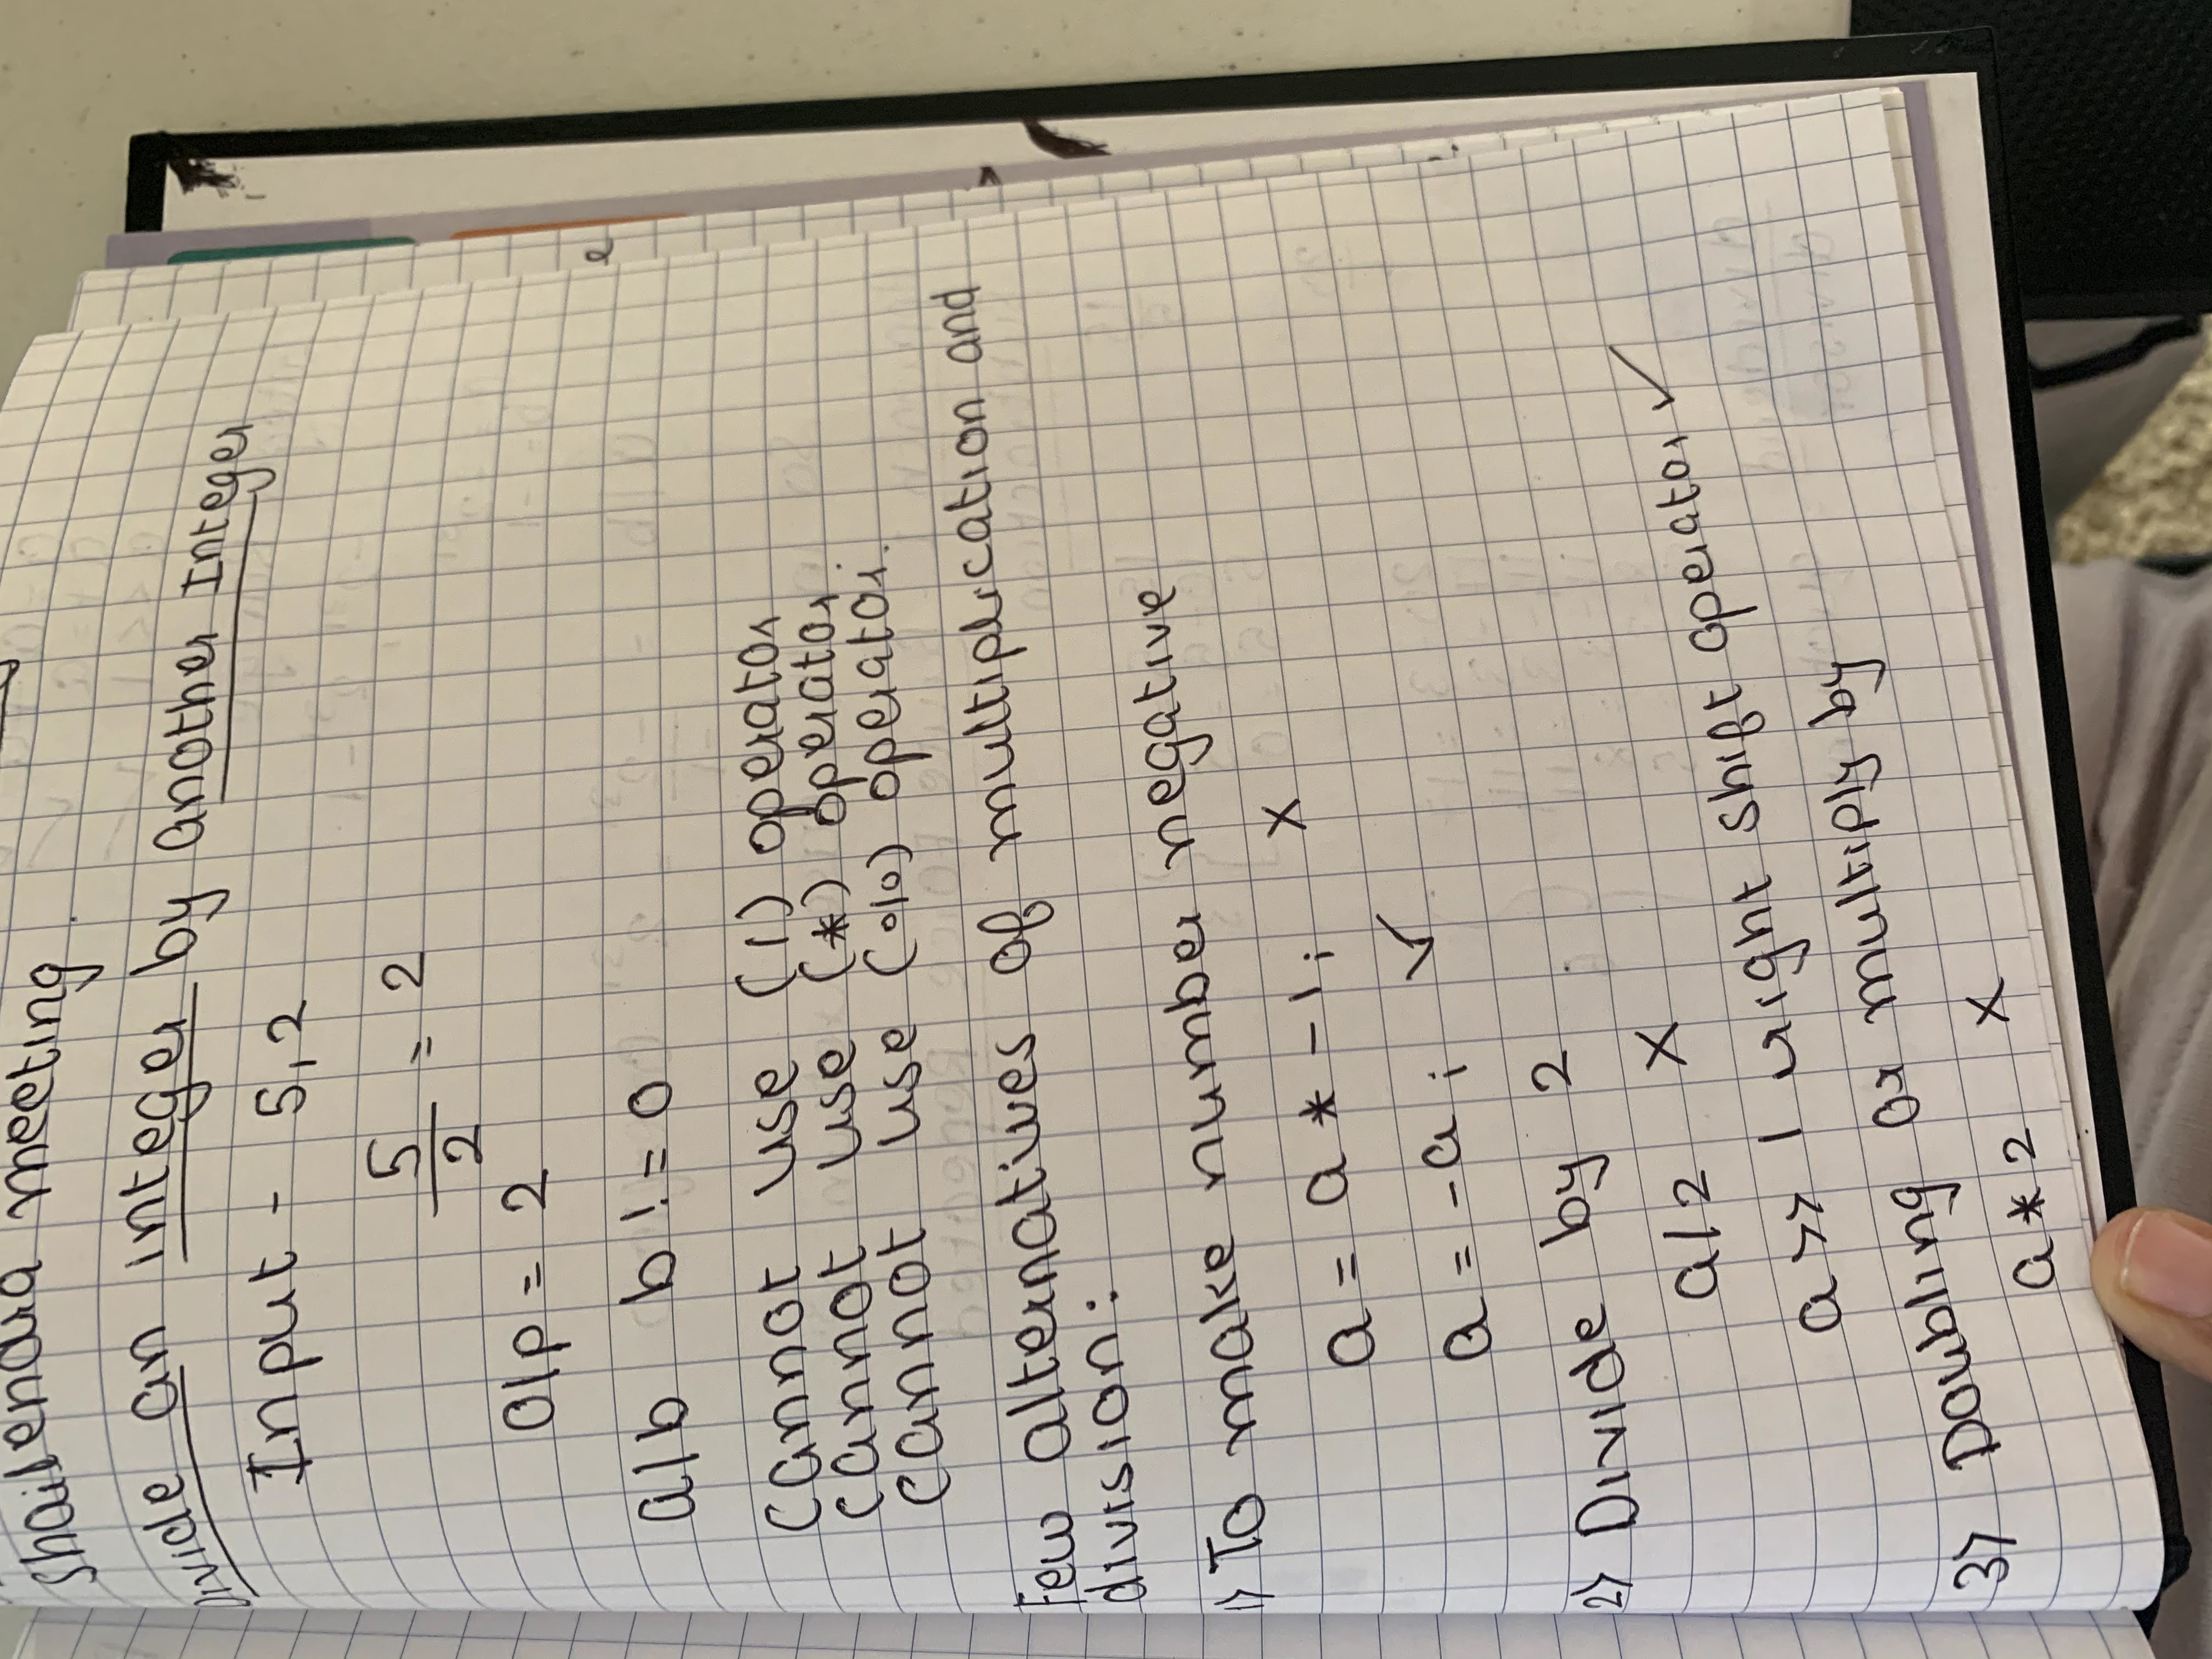 Shailendra meeting.
Divide an integer by another Integer
Input - 5,2
5/2 = 2
O/p = 2
a/b b != 0
cannot use (/) operator
cannot use (*) operator.
cannot use (%) operator.
Few alternatives of multiplication and
division:
1) To make number negative
a = a * -1; X
a = -a; ✓
2) Divide by 2
a/2 X
a >> 1 right shift operator ✓
3) Doubling or multiply by
a * 2 X